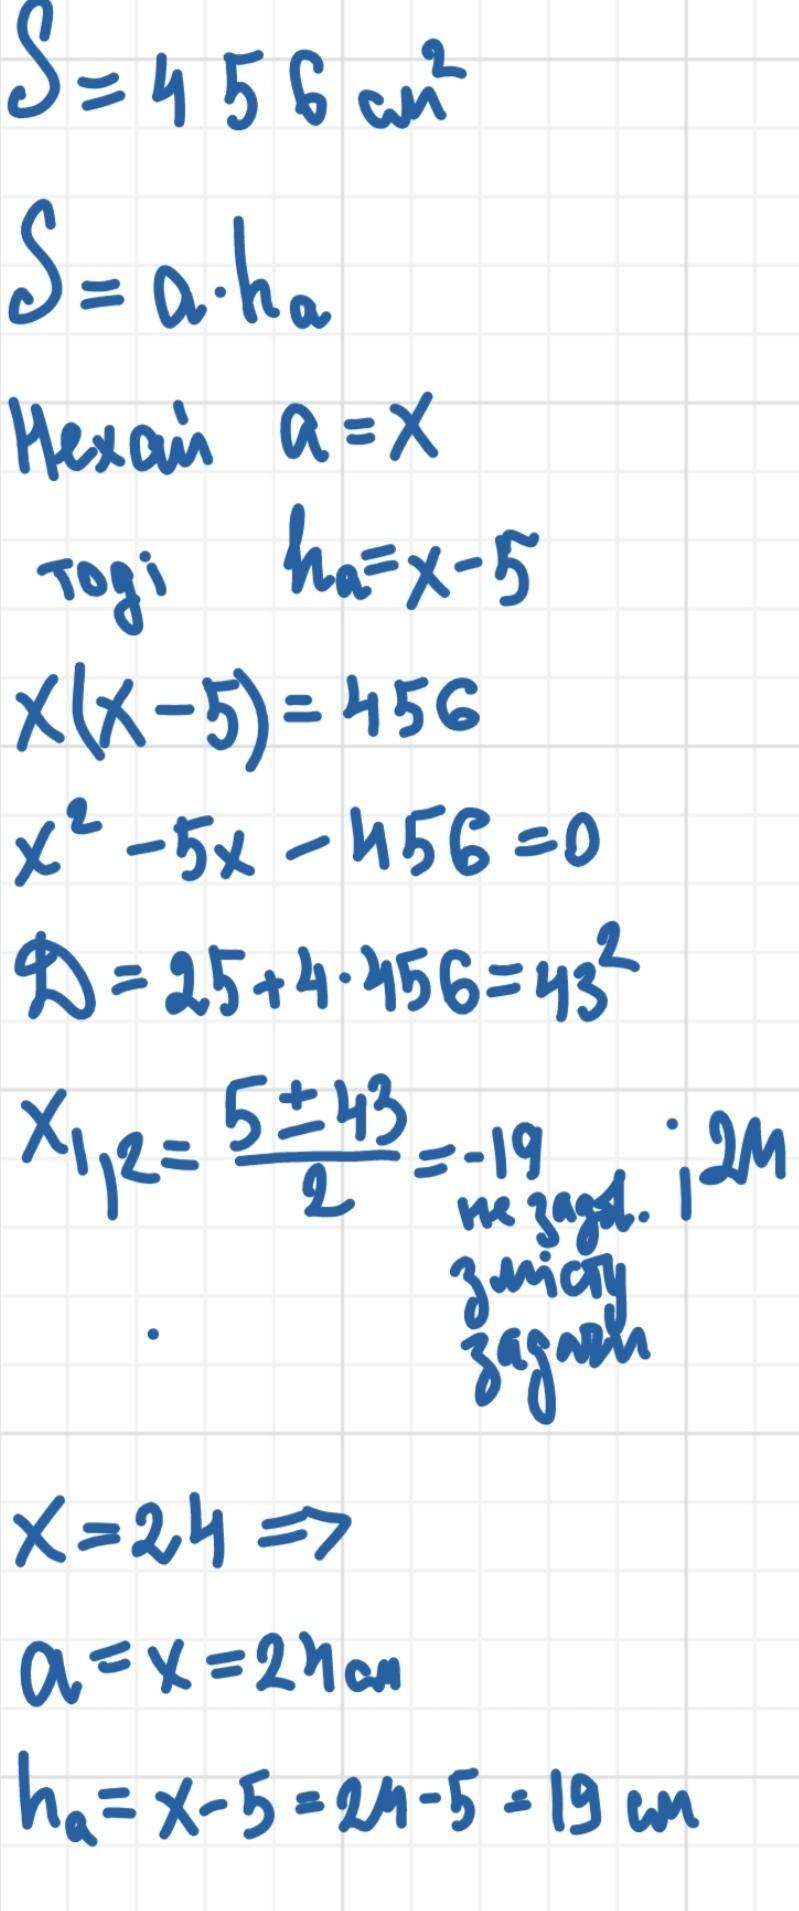 S = 456 см²
S = a·hₐ
Нехай a = x
тоді hₐ = x - 5
x(x - 5) = 456
x² - 5x - 456 = 0
D = 25 + 4·456 = 43²
x₁,₂ = (5 ± 43)/2 = -19 ; 24
не задов.
змісту
задачі
x = 24 =>
a = x = 24 см
hₐ = x - 5 = 24 - 5 = 19 см